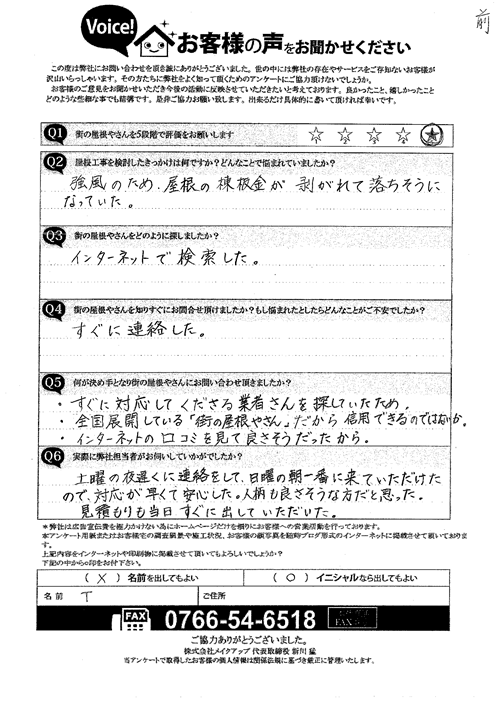 前
Voice!
お客様の声をお聞かせください
この度は弊社にお問い合わせを頂き誠にありがとうございました。世の中には弊社の存在やサービスをご存知ないお客様が
沢山いらっしゃいます。その方たちに弊社をよく知って頂くためのアンケートにご協力頂けないでしょうか。
お客様のご意見をお聞かせいただき今後の活動に反映させていただきたいと考えております。良かったこと、嬉しかったこと
どのような些細な事でも結構です。是非ご協力お願い致します。出来るだけ具体的に書いて頂ければ幸いです。
Q1 街の屋根やさんを5段階で評価をお願いします
Q2 屋根工事を検討したきっかけは何ですか?どんなことで悩まれていましたか?
強風のため、屋根の棟板金が剥がれて落ちそうに
なっていた。
Q3 街の屋根やさんをどのように探しましたか?
インターネットで検索した。
Q4 街の屋根やさんを知りすぐにお問合せ頂けましたか?もし悩まれたとしたらどんなことがご不安でしたか?
すぐに連絡した。
Q5 何が決め手となり街の屋根やさんにお問い合わせ頂きましたか?
・すぐに対応してくださる業者さんを探していたため。
・全国展開している「街の屋根やさん」だから信用できるのではないか。
・インターネットの口コミを見て良さそうだったから。
Q6 実際に弊社担当者がお伺いしていかがでしたか?
土曜の夜遅くに連絡をして、日曜の朝一番に来ていただけた
ので、対応が早くて安心した。人柄も良さそうな方だと思った。
見積もりも当日すぐに出していただいた。
*弊社は広告宣伝費を極力かけない為にホームページだけを頼りにお客様への営業活動を行っております。
本アンケート用紙またはお客様宅の調査風景や施工状況、お客様の顔写真を随時ブログ形式のインターネットに掲載させて頂いております。
上記内容をインターネットや印刷物に掲載させて頂いてもよろしいでしょうか?
下記の中から○印をお付け下さい。
( X ) 名前を出してもよい
( ○ ) イニシャルなら出してもよい
名前 T
ご住所
FAX 0766-54-6518
ご協力ありがとうございました。
株式会社メイクアップ 代表取締役 新川 猛
当アンケートで取得したお客様の個人情報は関係法規に基づき厳正に管理いたします。